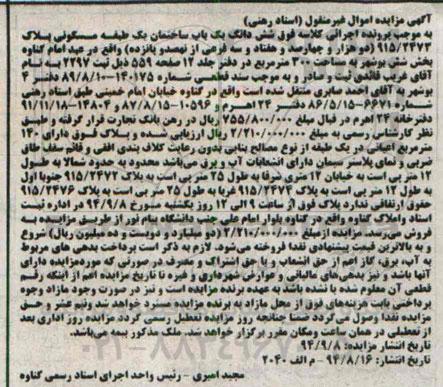 آگهی مزایده اموال غیرمنقول (اسناد رهنی)
به موجب پرونده اجرائی کلاسه فوق شش دانگ یک باب ساختمان یک طبقه مسکونی پلاک
۹۱۵/۲۴۷۳ (دو هزار و چهارصد و هفتاد و سه فرعی از نهصدو پانزده) واقع در عبد امام گناوه
بخش شش بوشهر به مساحت ۳۰۰ مترمربع در دفتر جلد ۱۲ صفحه ۵۵۹ ذیل ثبت ۲۲۹۷ به نام
آقای غریب قائدی ثبت و صادر و به موجب سند قطعی شماره ۱۴۰۱۷۵-۸۹/۸/۱۰ دفتر ۴
بوشهر به آقای احمد صابری منتقل شده است واقع در گناوه خیابان امام خمینی طبق اسناد رهنی
شماره ۶۶۷۱-۸۶/۵/۱۵ دفتر ۲۴ اهرم، ۱۰۵۹۶-۸۷/۸/۱۵ و ۱۴۸۰۴-۹۱/۱۱/۱۸
دفترخانه ۲۴ اهرم در قبال مبلغ ۷۵۵/۸۰۰/۰۰۰ ریال در رهن بانک تجارت قرار گرفته و طبق
نظر کارشناس رسمی به مبلغ ۲/۲۱۰/۰۰۰/۰۰۰ ریال ارزیابی شده و پلاک فوق دارای ۱۴۰
مترمربع اعیانی در یک طبقه از نوع مصالح بنایی بدون رعایت کلاف بندی افقی و قائم سقف طاق
ضربی و نمای پلاستر سیمان دارای انشعابات آب و برق می‌باشد محدود به حدود شمالا به طول
۱۲ متر پی است به خیابان ۱۲ متری شرقا به طول ۲۵ متر پی است به پلاک ۹۱۵/۲۴۷۲ جنوبا اول
به طول ۱۲ متر پی است به پلاک ۹۱۵/۲۴۷۴ غربا به طول ۲۵ متر پی است به پلاک ۹۱۵/۲۴۷۶
حقوق ارتفاقی ندارد پلاک فوق از ساعت ۹ الی ۱۲ روز یکشنبه مورخ ۹۴/۹/۸ در اداره ثبت
اسناد واملاک گناوه واقع در گناوه بلوار امام علی جنب دانشگاه پیام نور از طریق مزایده به
فروش می‌رسد. مزایده از مبلغ ۲/۲۱۰/۰۰۰/۰۰۰ (دو میلیارد و دویست و ده میلیون ریال) شروع
و به بالاترین قیمت پیشنهادی نقدا فروخته می‌شود. لازم به ذکر است پرداخت بدهی های مربوط
به آب، برق، گاز اعم از حق انشعاب و یا حق اشتراک و مصرف در صورتی که مورد مزایده دارای
آنها باشد و نیز بدهی‌های مالیاتی و عوارض شهرداری و غیره تا تاریخ مزایده اعم از اینکه رقم
قطعی آن معلوم شده یا نشده باشد به عهده برنده مزایده است و نیز در صورت وجود مازاد وجوه
پرداختی بابت هزینه‌های فوق از محل مازاد به برنده مزایده مسترد خواهد شد ونیم عشر و حق
مزایده نقدا وصول می‌گردد ضمنا چنانچه روز مزایده تعطیل رسمی گردد مزایده روز اداری بعد
از تعطیلی در همان ساعت ومکان مقرر برگزار خواهد شد. ملک مذکور بیمه می‌باشد.
تاریخ انتشار مزایده: ۹۴/۹/۸
تاریخ انتشار: ۹۴/۸/۱۶ - م الف ۲۰۴۰
مجید امیری - رئیس واحد اجرای اسناد رسمی گناوه